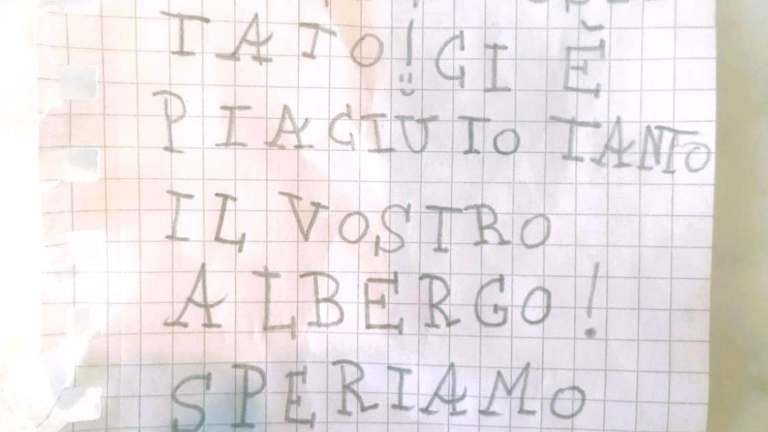 TATO! CI È
PIACIUTO TANTO
IL VOSTRO
ALBERGO!
SPERIAMO